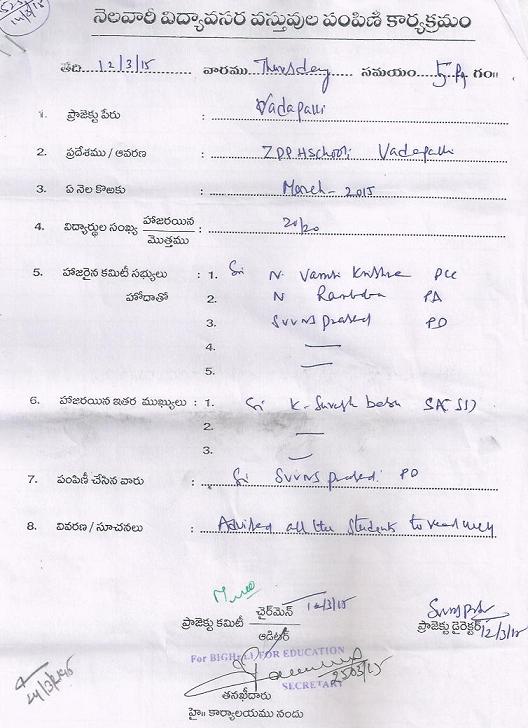 14/3/15
నెలవారీ విద్యావసర వస్తువుల పంపిణీ కార్యక్రమం
తేది 12/3/15 వారము Thursday సమయం గం॥
1. ప్రాజెక్టు పేరు : Vadapalli
2. ప్రదేశము / ఆవరణ : ZPP HSchool: Vadapalli
3. ఏ నెల కొఱకు : March - 2015
4. విద్యార్థుల సంఖ్య హాజరయిన / మొత్తము : 20/20
5. హాజరైన కమిటీ సభ్యులు : 1. Sri N. Vamsi Krishna PCC
హోదాతో 2. N Rambabu PA
3. SVVNS prasad PD
4. —
5. —
6. హాజరయిన ఇతర ముఖ్యులు : 1. Sri K. Suresh babu SA(SS)
2. —
3. —
7. పంపిణీ చేసిన వారు : Sri SVVNS prasad: PD
8. వివరణ / సూచనలు : Advised all the students to read well
ప్రాజెక్టు కమిటీ చైర్‌మెన్ / ఆడిటర్ 12/3/15
ప్రాజెక్టు డైరెక్టర్ 12/3/15
For BIGHELP FOR EDUCATION
25/03/15
SECRETARY
తనఖీదారు
హై॥ కార్యాలయము నందు
24/3/2015